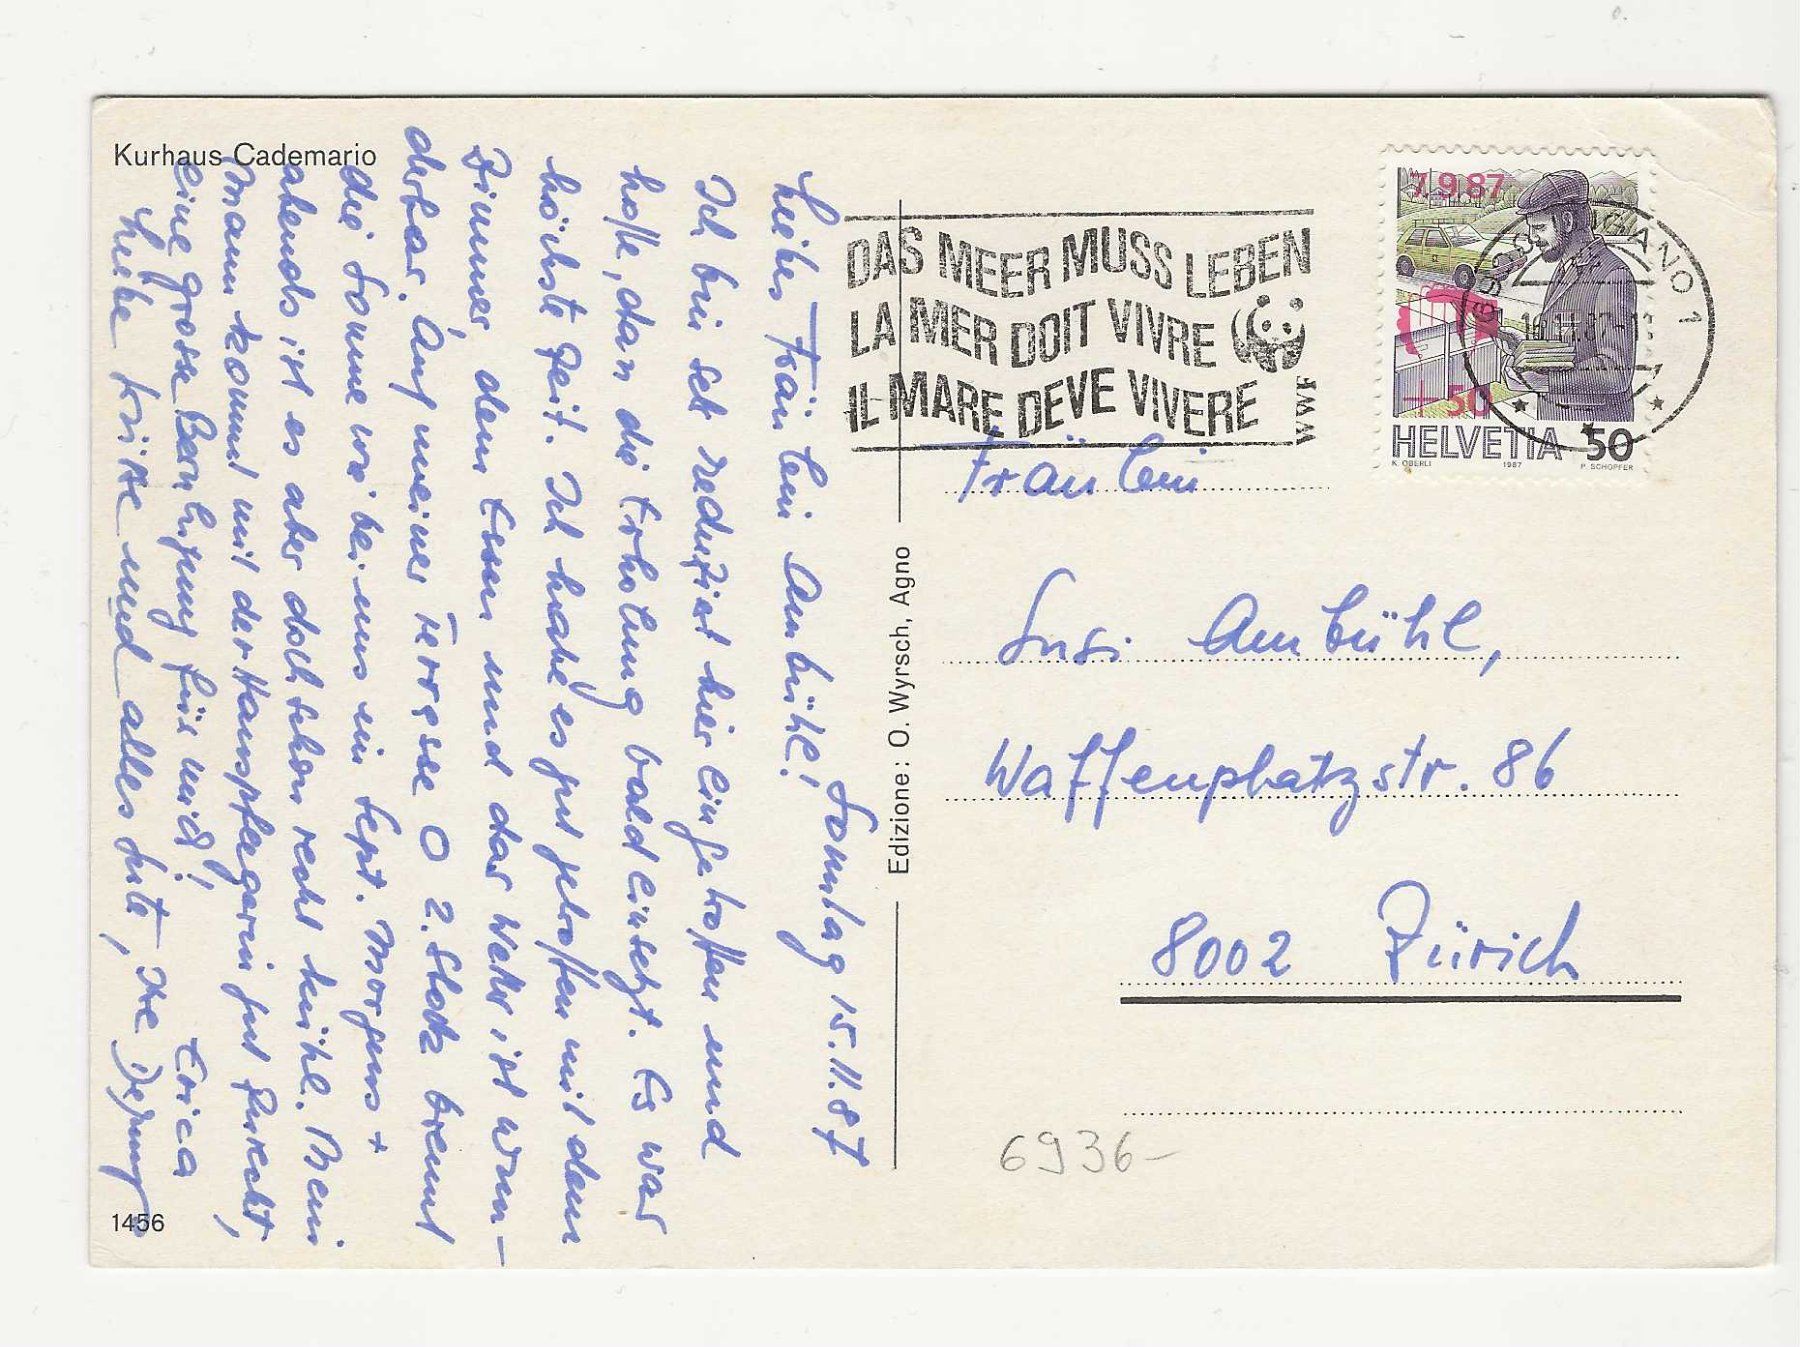 Kurhaus Cademario
Sonntag 15.11.87
Liebes Fräulein Ambühl!
Ich bin seit reduziert hier eingetroffen und
hoffe, dass die Erholung bald einsetzt. Es war
höchste Zeit. Ich habe es gut getroffen mit dem
Zimmer, dem Essen und das Wetter ist wun-
derbar. Auf meiner Terrasse O 2. Stock brennt
die Sonne wie bei uns im Sept. Morgens +
abends ist es aber doch schon recht kühl. Mein
Mann kommt mit der Hauspflegerin gut zurecht,
eine grosse Beruhigung für mich!
Liebe Grüsse und alles Gute, Ihre
Erica
1456
Edizione: O. Wyrsch, Agno
DAS MEER MUSS LEBEN
LA MER DOIT VIVRE
IL MARE DEVE VIVERE
WWF
7.9.87
LUGANO 1
+50
HELVETIA 50
K. OBERLI 1987 P. SCHOPFER
Fräulein
Susi Ambühl,
Waffenplatzstr. 86
8002 Zürich
6936-